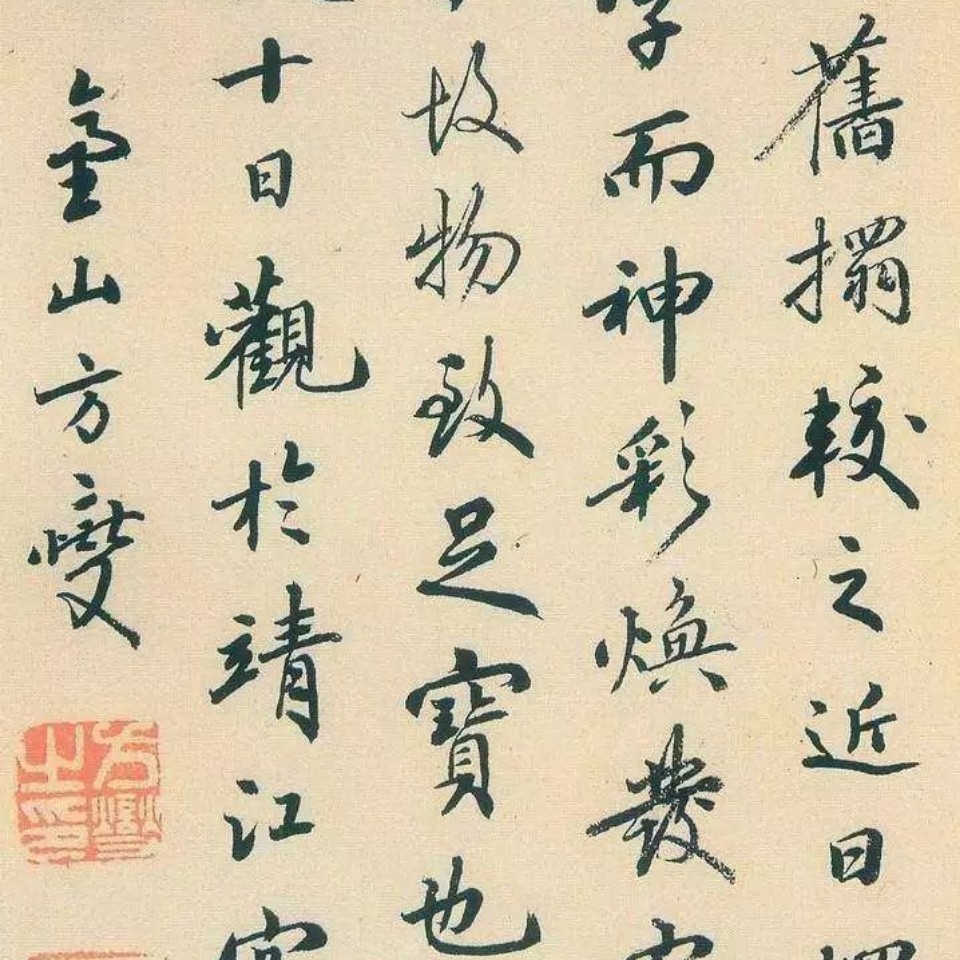 舊搨較之近日
字而神彩煥發
故物致足寶也
十日觀於靖江
金山方夔